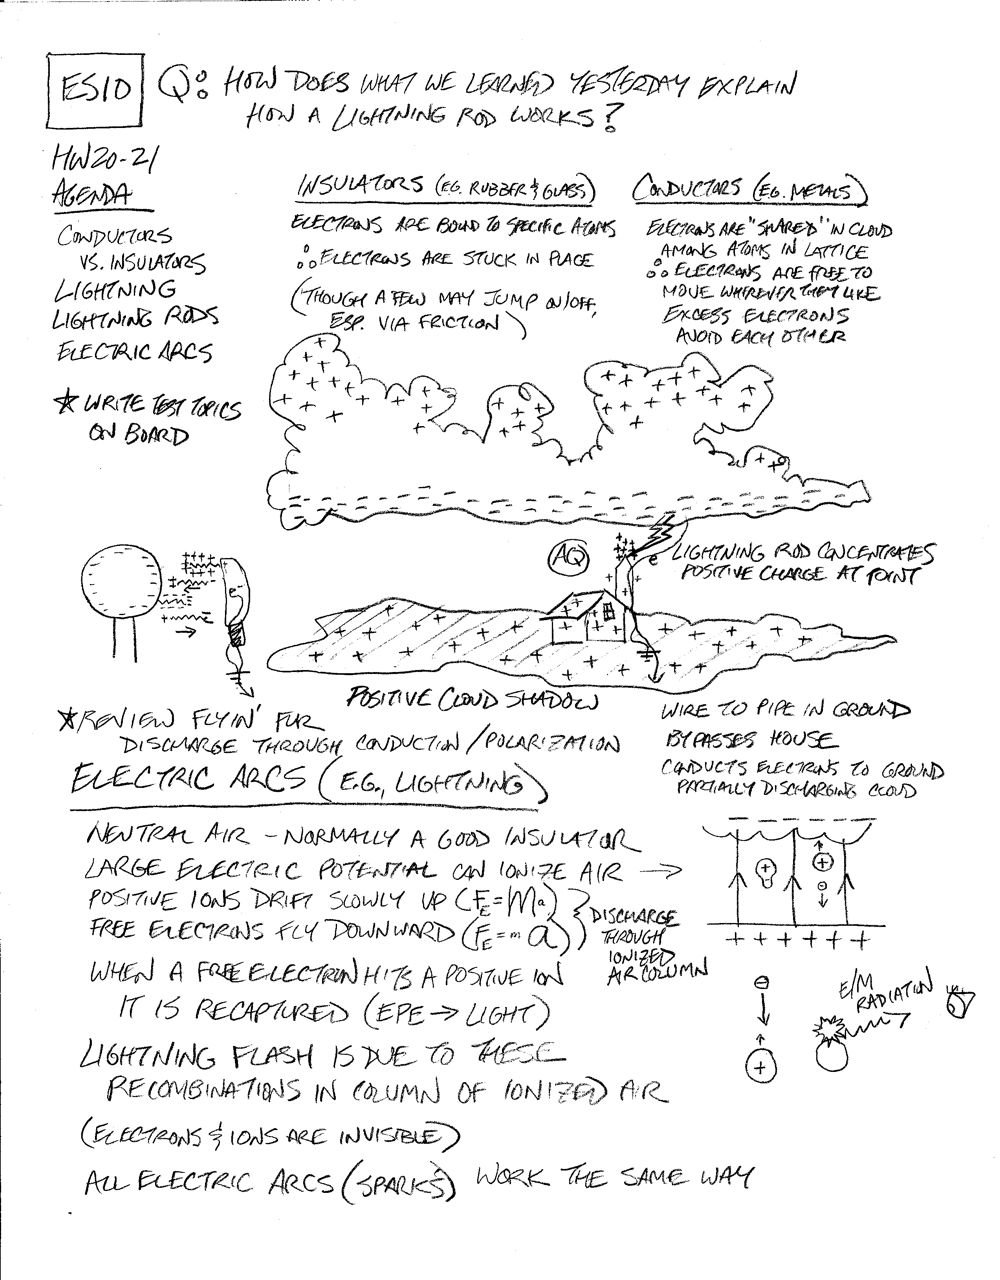 ES10
Q: HOW DOES WHAT WE LEARNED YESTERDAY EXPLAIN
HOW A LIGHTNING ROD WORKS?
HW20-21
AGENDA
CONDUCTORS
VS. INSULATORS
LIGHTNING
LIGHTNING RODS
ELECTRIC ARCS
* WRITE TEST TOPICS
ON BOARD
INSULATORS (E.G. RUBBER & GLASS)
ELECTRONS ARE BOUND TO SPECIFIC ATOMS
∴ ELECTRONS ARE STUCK IN PLACE
(THOUGH A FEW MAY JUMP ON/OFF,
ESP. VIA FRICTION)
CONDUCTORS (E.G. METALS)
ELECTRONS ARE "SHARED" IN CLOUD
AMONG ATOMS IN LATTICE
∴ ELECTRONS ARE FREE TO
MOVE WHEREVER THEY LIKE
EXCESS ELECTRONS
AVOID EACH OTHER
AQ
e⁻
LIGHTNING ROD CONCENTRATES
POSITIVE CHARGE AT POINT
e⁻
POSITIVE CLOUD SHADOW
WIRE TO PIPE IN GROUND
BYPASSES HOUSE
CONDUCTS ELECTRONS TO GROUND
PARTIALLY DISCHARGING CLOUD
* REVIEW FLYIN' FUR
DISCHARGE THROUGH CONDUCTION/POLARIZATION
ELECTRIC ARCS (E.G., LIGHTNING)
NEUTRAL AIR - NORMALLY A GOOD INSULATOR
LARGE ELECTRIC POTENTIAL CAN IONIZE AIR →
POSITIVE IONS DRIFT SLOWLY UP (FE=Ma)
FREE ELECTRONS FLY DOWNWARD (FE=ma)
DISCHARGE
THROUGH
IONIZED
AIR COLUMN
WHEN A FREE ELECTRON HITS A POSITIVE ION
IT IS RECAPTURED (EPE → LIGHT)
E/M
RADIATION
LIGHTNING FLASH IS DUE TO THESE
RECOMBINATIONS IN COLUMN OF IONIZED AIR
(ELECTRONS & IONS ARE INVISIBLE)
ALL ELECTRIC ARCS (SPARKS) WORK THE SAME WAY